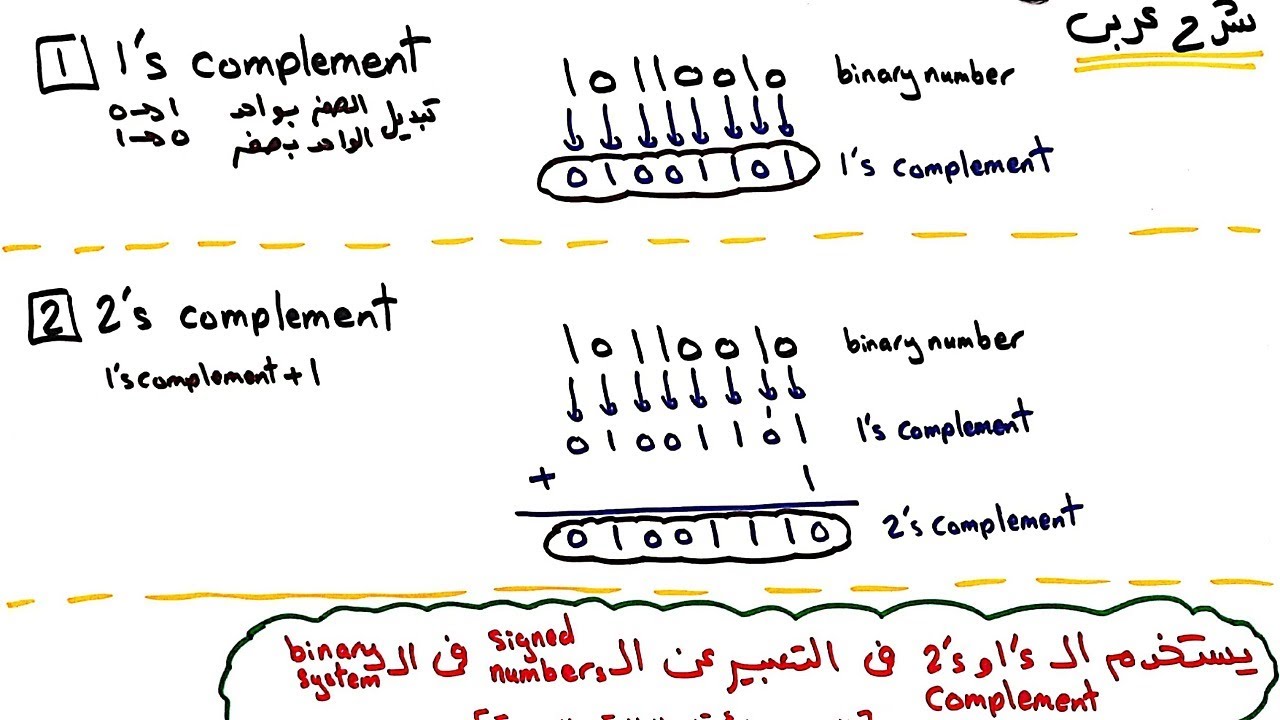 شرح عربى
1 1's complement
تبديل الصفر بواحد 1→0
الواحد بصفر 0→1
10110010 binary number
01001101 1's complement
2 2's complement
1's complement + 1
10110010 binary number
1
01001101 1's complement
+ 1
01001110 2's complement
يستخدم الـ 1's و 2's complement فى التعبير عن الـ signed numbers فى الـ binary system